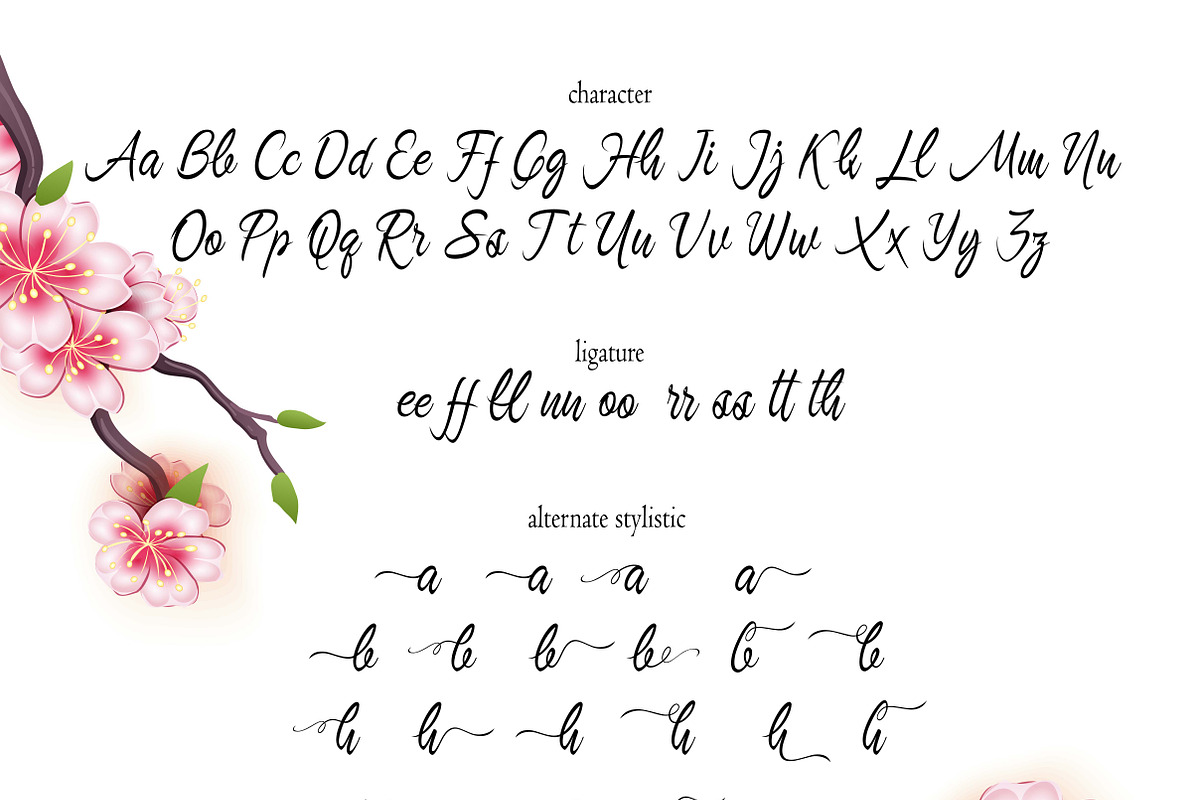 character
Aa Bb Cc Dd Ee Ff Gg Hh Ii Jj Kk Ll Mm Nn
Oo Pp Qq Rr Ss Tt Uu Vv Ww Xx Yy Zz
ligature
ee ff ll nn oo rr ss tt th
alternate stylistic
a a a a
b b b b b b
h h h h h h